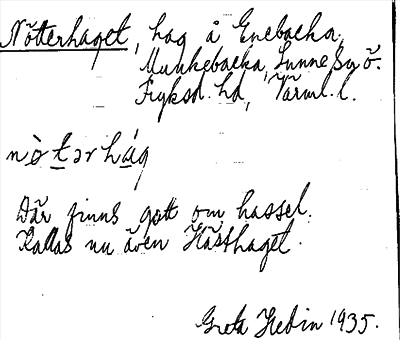 Nötterhaget, hag å Enebacka,
Munkebacka, Sunne sn ö.
Fryksd. hd, Värml. l.
nò̤tərhág
Där finns gott om hassel.
Kallas nu även Hästhaget.
Greta Hedin 1935.